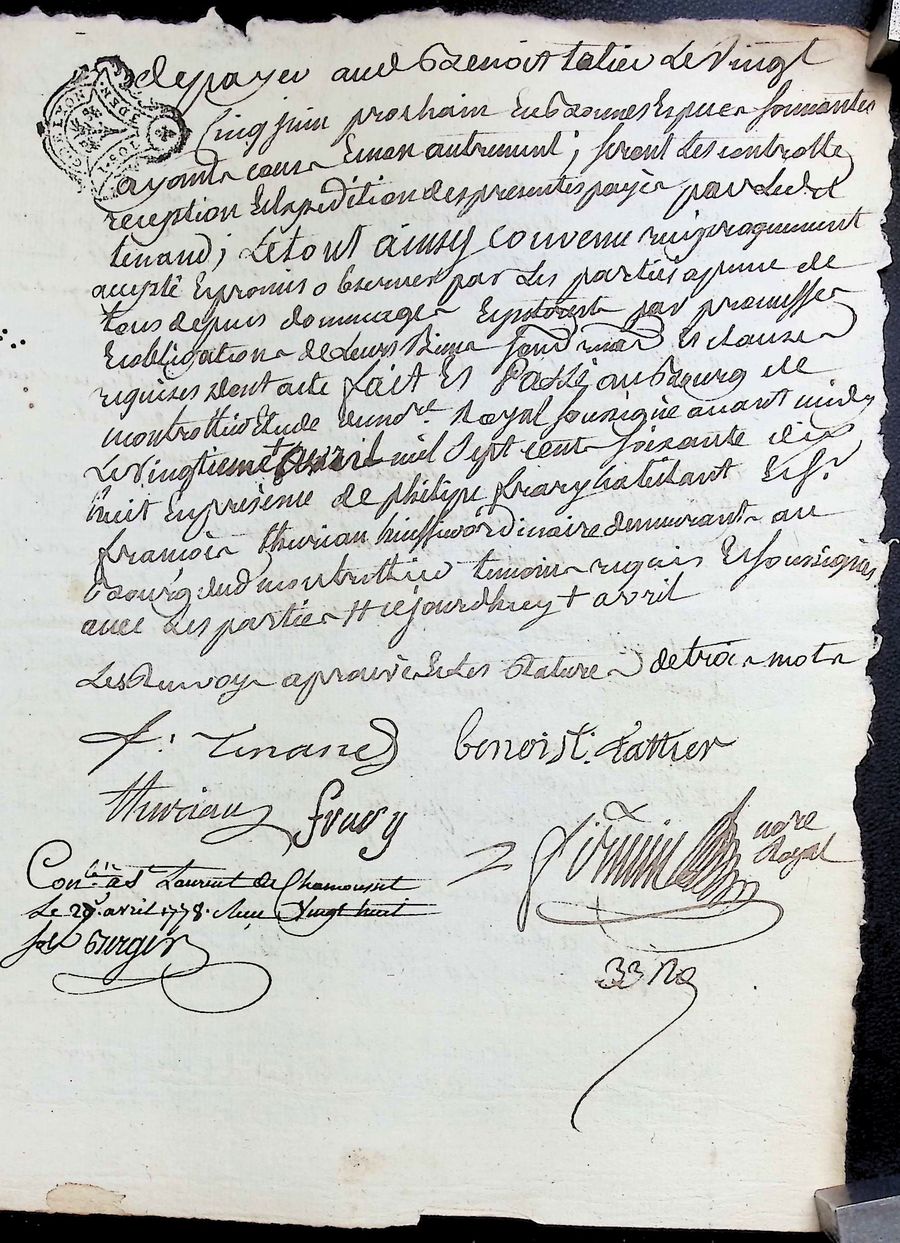 de payer aud Benoist talier Le vingt
Cinq juin prochain en bonnes Especes sonnantes
ayant cours Et non autrement ; seront Les controlle
reception Et Expedition des presentes payée par Led
tenand ; Le tout ainsy convenu reciproquement
accepté Et promis observer par Les parties a peine de
tous depens dommages Et interest par promesse
Et obligation de Leurs Biens Et clauses
requises dont acte fait Et Passé au Bourg de
montrottier Etude du no.re Royal soussigné avant midy
Le vingtieme avril mil Sept cent soixante dix
huit En presence de philipe frary Et Sr
francois thurian huissier ordinaire demeurants au
Bourg dud montrottier temoins requis Et soussignés
avec Les parties # cejourdhuy + avril
Les Renvoys aprouvé Et Les Rature de trois mots
f. Tenand benoist. Tattier
thurian frary
firmin no.re Royal
Con.lé à St Laurent de Chamousset
Le 29. avril 1778. Vingt huit